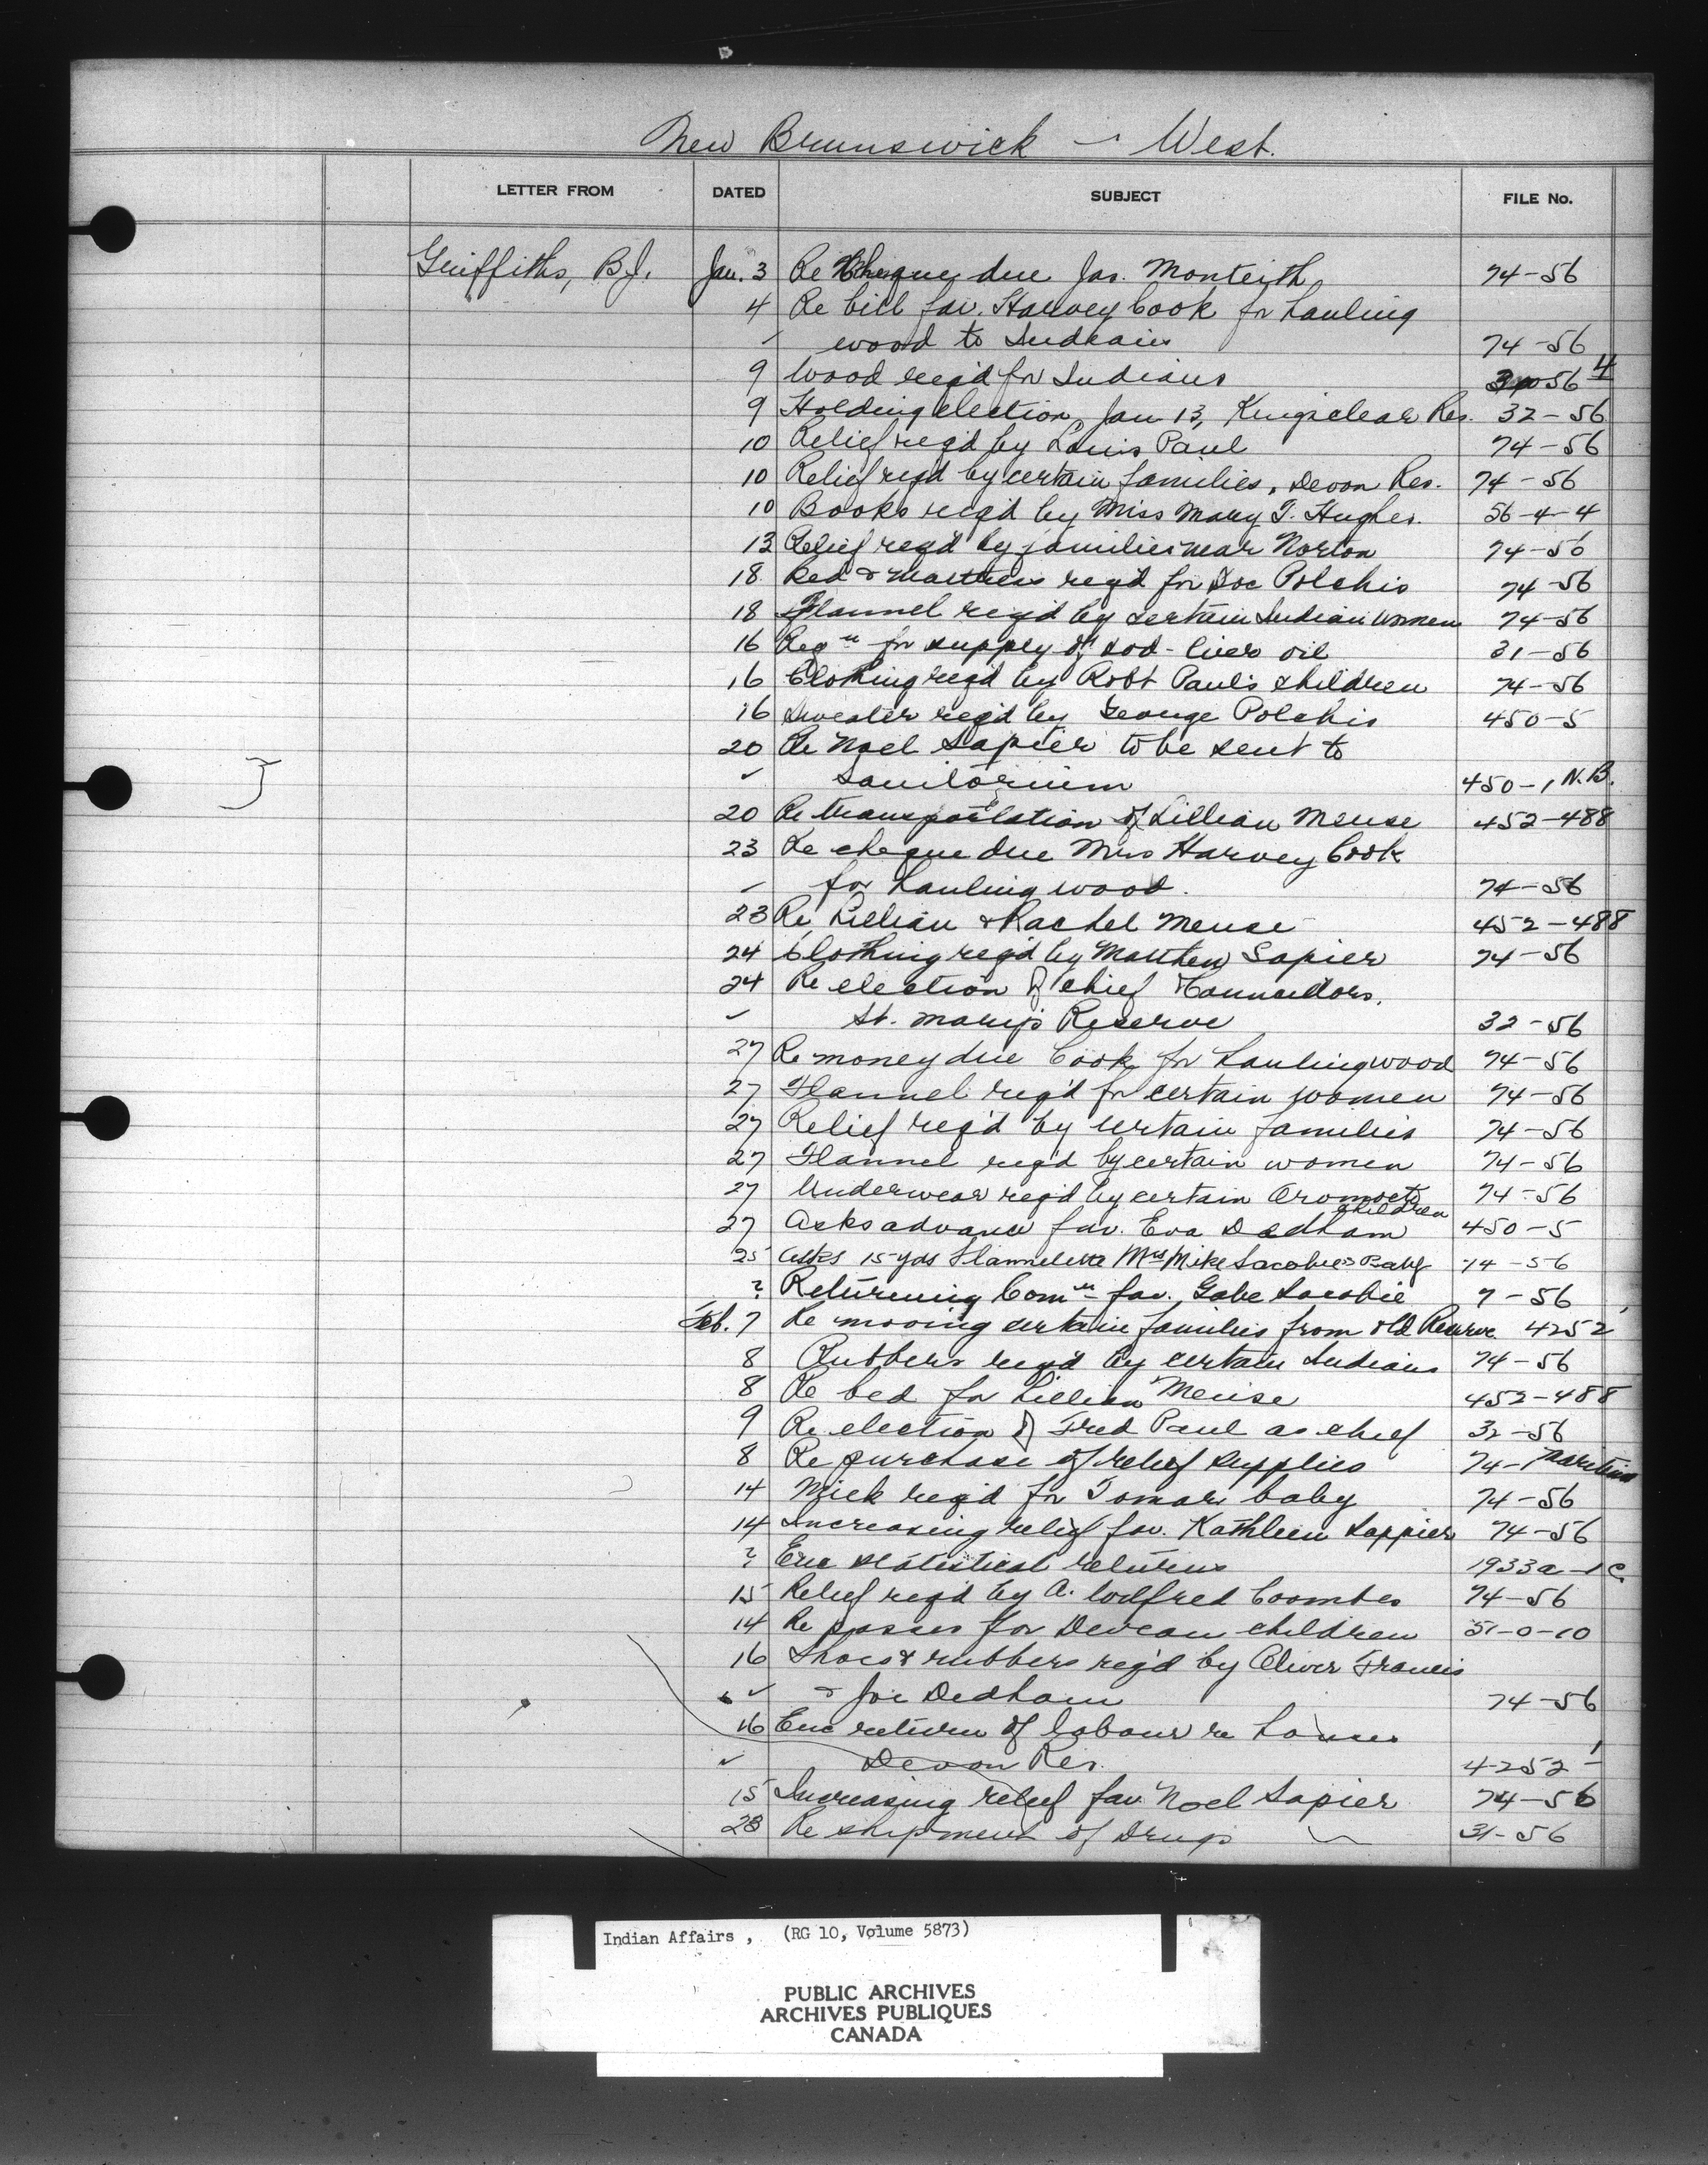 New Brunswick - West.
LETTER FROM DATED SUBJECT FILE No.
Griffiths, B.J. Jan. 3 Re Cheque due Jas. Monteith 74-56
4 Re bill fav. Harvey Cook for hauling
✓ wood to Indians 74-56
9 Wood req'd for Indians 56 4
9 Holding election, Jan 13, Kingsclear Res. 32-56
10 Relief req'd by Louis Paul 74-56
10 Relief req'd by certain families, Devon Res. 74-56
10 Books req'd by Miss Mary T. Hughes. 56-4-4
13 Relief req'd by families near Norton 74-56
18 Bed & Mattress req'd for Joe Polchis 74-56
18 Flannel req'd by certain Indian women 74-56
16 Reqn for supply of cod-liver oil 31-56
16 Clothing req'd by Robt Paul's children 74-56
16 Sweater req'd by George Polchis 450-5
20 Re Noel Sapier to be sent to
✓ Sanitorium 450-1 N.B.
20 Re transportation of Lillian Meuse 452-488
23 Re cheque due Mrs Harvey Cook
✓ for hauling wood. 74-56
23 Re Lillian & Rachel Meuse 452-488
24 Clothing req'd by Matthew Sapier 74-56
24 Re election of chief & Councillors,
✓ St. Mary's Reserve 32-56
27 Re money due Cook for hauling wood 74-56
27 Flannel req'd for certain women 74-56
27 Relief req'd by certain families 74-56
27 Flannel req'd by certain women 74-56
27 Underwear req'd by certain Oromocto children 74-56
27 Asks advance fav. Eva Dedham 450-5
25 Asks 15 yds Flannelette Mrs Mike Sacobie's Baby 74-56
? Returning Comn fav. Gabe Sacobie 7-56
Feb. 7 Re moving certain families from old Reserve 4252
8 Rubbers req'd by certain Indians 74-56
8 Re bed for Lillian Meuse 452-488
9 Re election of Fred Paul as chief 32-56
8 Re purchase of relief supplies 74-1 Maritime
14 Milk req'd for Tomah baby 74-56
14 Increasing relief fav. Kathleen Sappier 74-56
? Enc statistical returns 1933a-1c
15 Relief req'd by A. Wilfred Coombes 74-56
14 Re passes for Devean children 51-0-10
16 Shoes & rubbers req'd by Oliver Francis
✓ & Joe Dedham 74-56
16 Enc return of labour re houses
✓ Devon Res. 4252-1
15 Increasing relief fav. Noel Sapier 74-56
28 Re shipment of Drugs 31-56
Indian Affairs, (RG 10, Volume 5873)
PUBLIC ARCHIVES
ARCHIVES PUBLIQUES
CANADA